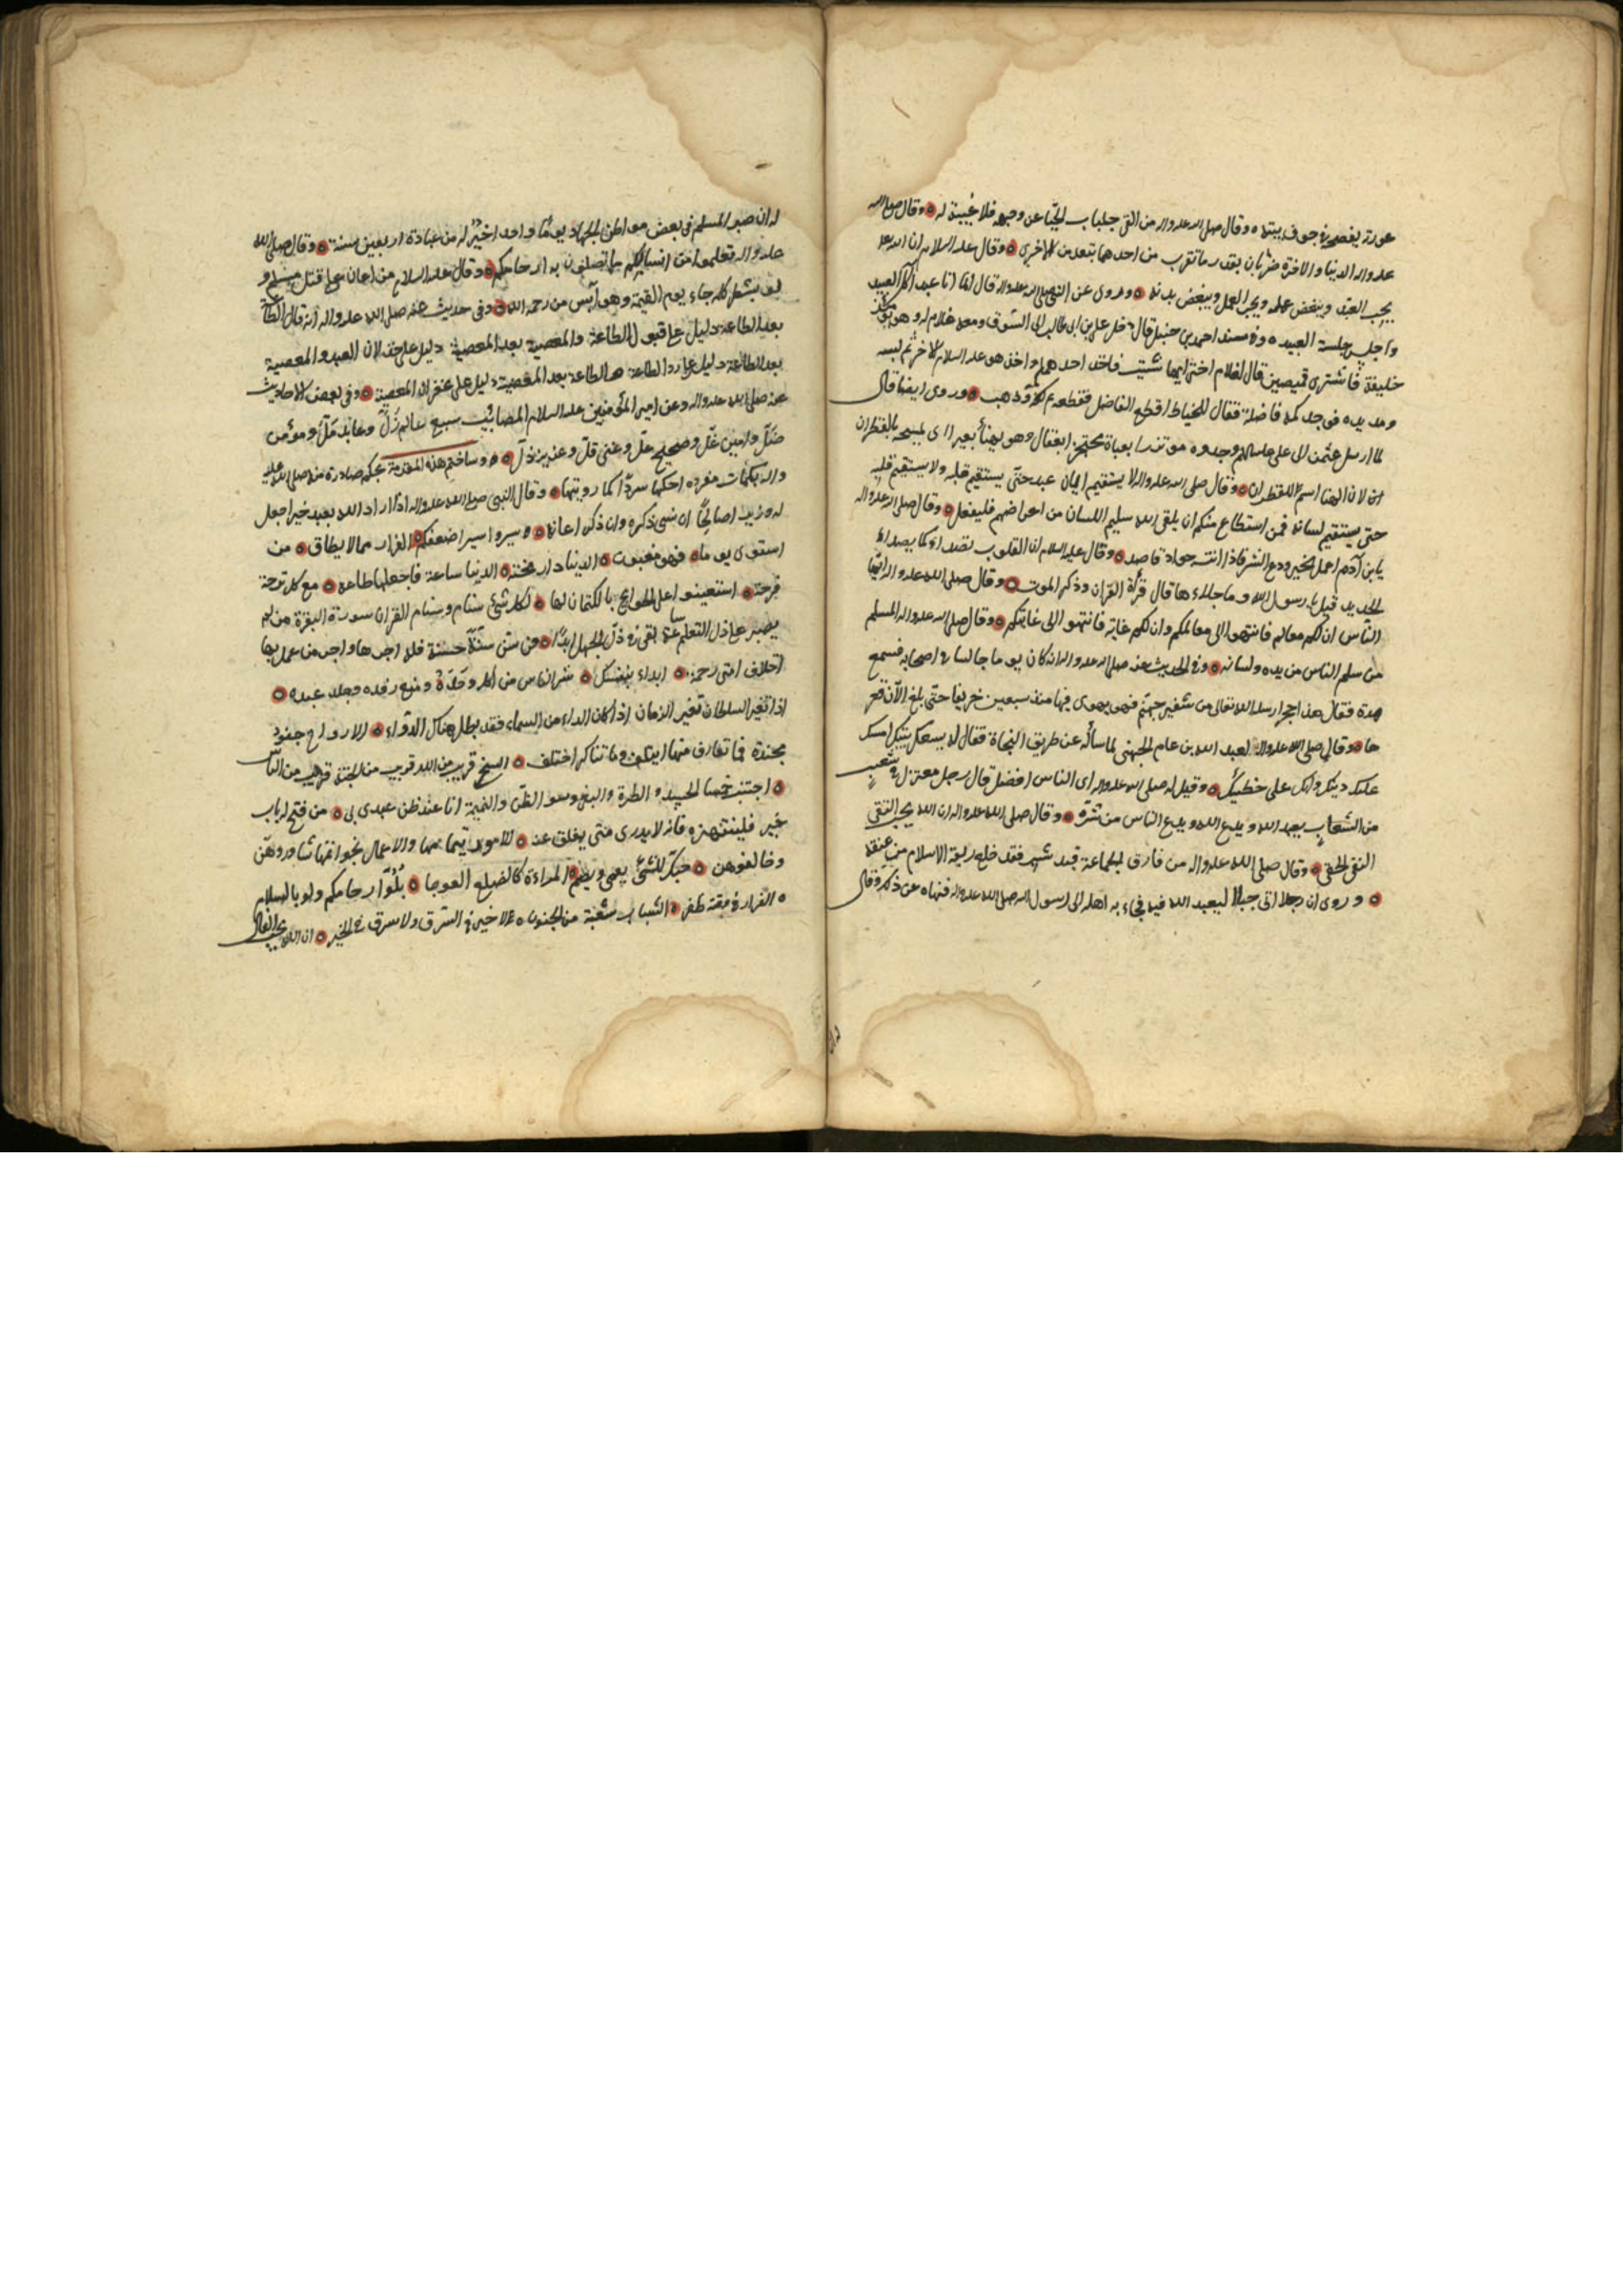 عورة يفضحه في جوف بيته ٥ وقال صلى الله عليه واله من القى جلباب الحيا عن وجهه فلا غيبة له ٥ وقال صلى الله
عليه واله الدنيا والاخرة ضرتان بقدر ما تقرب من احدهما تبعد من الاخرى ٥ وقال عليه السلام ان الله
يحب العبد ويبغض عمله ويحب العمل ويبغض بدنه ٥ وروى عن النبي صلى الله عليه واله قال انما انا عبد اكل اكل العبيد
واجلس جلسة العبيد ٥ وفي مسند احمد بن حنبل قال دخل علي بن ابي طالب الى السوق ومعه غلام له وهو
خليفة فاشترى قميصين قال لغلام اختر ايهما شئت فاخذ احدهما واخذ هو عليه السلام الاخر ثم لبسه
ومد يده فوجد كمه فاضلة فقال للخياط اقطع الفاضل فقطعه ثم كفه وذهب ٥ وروى ايضا قال
لما ارسل عثمن الى علي عليه السلام وجدوه موتزرا بعباة محتجزا بعقال وهو يهنأ بعيرا اى يمسحه بالقطران
لان الهنا اسم للقطران ٥ وقال صلى الله عليه واله لا يستقيم ايمان عبد حتى يستقيم قلبه ولا يستقيم قلبه
حتى يستقيم لسانه فمن استطاع منكم ان يلقى الله سليم اللسان من اعراضهم فليفعل ٥ وقال صلى الله عليه واله
يا بن آدم اعمل الخير ودع الشر فاذا انت جواد قاصد ٥ وقال عليه السلام ان القلوب تصداء كما يصداء
الحديد قيل يا رسول الله وما جلاءها قال قرأة القران وذكر الموت ٥ وقال صلى الله عليه واله ايها
الناس ان لكم معالم فانتهوا الى معالمكم وان لكم غاية فانتهوا الى غايتكم ٥ وقال صلى الله عليه واله المسلم
من سلم الناس من يده ولسانه ٥ وفي الحديث عنه صلى الله عليه واله انه كان يوما جالسا في اصحابه فسمع
هدة فقال هذا حجر ارسله الله تعالى من شفير جهنم فهو يهوى فيها منذ سبعين خريفا حتى بلغ الآن قعر
ها ٥ وقال صلى الله عليه واله لعبد الله بن عامر الجهني لما سأله عن طريق النجاة فقال له يسعك بيتك امسك
عليك دينك وابك على خطيئتك ٥ وقيل له صلى الله عليه واله اى الناس افضل قال رجل معتزل في شعب
من الشعاب يعبد الله ويدع الناس من شره ٥ وقال صلى الله عليه واله ان الله يحب التقى
النقى الخفى ٥ وقال صلى الله عليه واله من فارق الجماعة قيد شبر فقد خلع ربقة الاسلام من عنقه
٥ وروى ان رجلا اتى جبلا ليعبد الله فيه فجاء به اهله الى رسول الله صلى الله عليه واله فنهاه عن ذلك وقال
له ان صبر المسلم في بعض مواطن الجهاد يوما واحدا خير له من عبادة اربعين سنة ٥ وقال صلى الله
عليه واله تعلموا من انسابكم ما تصلون به ارحامكم ٥ وقال عليه السلام من اعان على قتل مسلم ولو
بشطر كلمة جاء يوم القيمة وهو آيس من رحمة الله ٥ وفي حديث عنه صلى الله عليه واله انه قال الطاعة
بعد الطاعة دليل على قبول الطاعة والمعصية بعد المعصية دليل على خذلان العبد والمعصية
بعد الطاعة دليل على رد الطاعة والطاعة بعد المعصية دليل على غفران المعصية ٥ وفي بعض الاحاديث
عنه صلى الله عليه واله وعن امير المؤمنين عليه السلام المصائب سبع عالم زل وعابد مل ومؤمن
ضل وامين غل وصحيح عل وغني قل وعزيز ذل ٥ وساختم هذه المقدمة بحكم صادرة منه صلى الله عليه
واله بكلمات مفرده احكها سردا كما رويتها ٥ وقال النبي صلى الله عليه واله اذا اراد الله بعبد خيرا جعل
له وزيرا صالحا ان نسى ذكره وان ذكر اعانه ٥ وسيروا سير اضعفكم ٥ الفرار مما لا يطاق ٥ من
استوى يوماه فهو مغبون ٥ الدنيا دار محنة ٥ الدنيا ساعة فاجعلها طاعة ٥ مع كل ترحة
فرحة ٥ استعينوا على الحوايج بالكتمان لها ٥ لكل شئ سنام وسنام القران سورة البقرة من لم
يصبر على ذل التعلم ساعة بقى في ذل الجهل ابدا ٥ من سن سنة حسنة فله اجرها واجر من عمل بها
اختلاف امتى رحمة ٥ ابداء بنفسك ٥ شر الناس من اكل وحده ومنع رفده وجلد عبده ٥
اذا تغير السلطان تغير الزمان اذا كان الداء من السماء فقد بطل هناك الدواء ٥ الارواح جنود
مجندة فما تعارف منها ائتلف وما تناكر اختلف ٥ السخي قريب من الله قريب من الجنة قريب من الناس
٥ اجتنب خمسا الحسد والطيرة والبغي وسوء الظن والنميمة انا عند ظن عبدى بى ٥ من فتح له باب
خير فلينتهزه فانه لا يدرى متى يغلق عنه ٥ الامور بتمامها والاعمال بخواتمها شاوروهن
وخالفوهن ٥ حبك للشئ يعمى ويصم ٥ المراءة كالضلع العوجا ٥ بلوا ارحامكم ولو بالسلام
٥ الفرار في وقته ظفر ٥ الشباب شعبة من الجنون ٥ لا خير في السرف ولا سرف في الخير ٥ ان الله يحب الفال